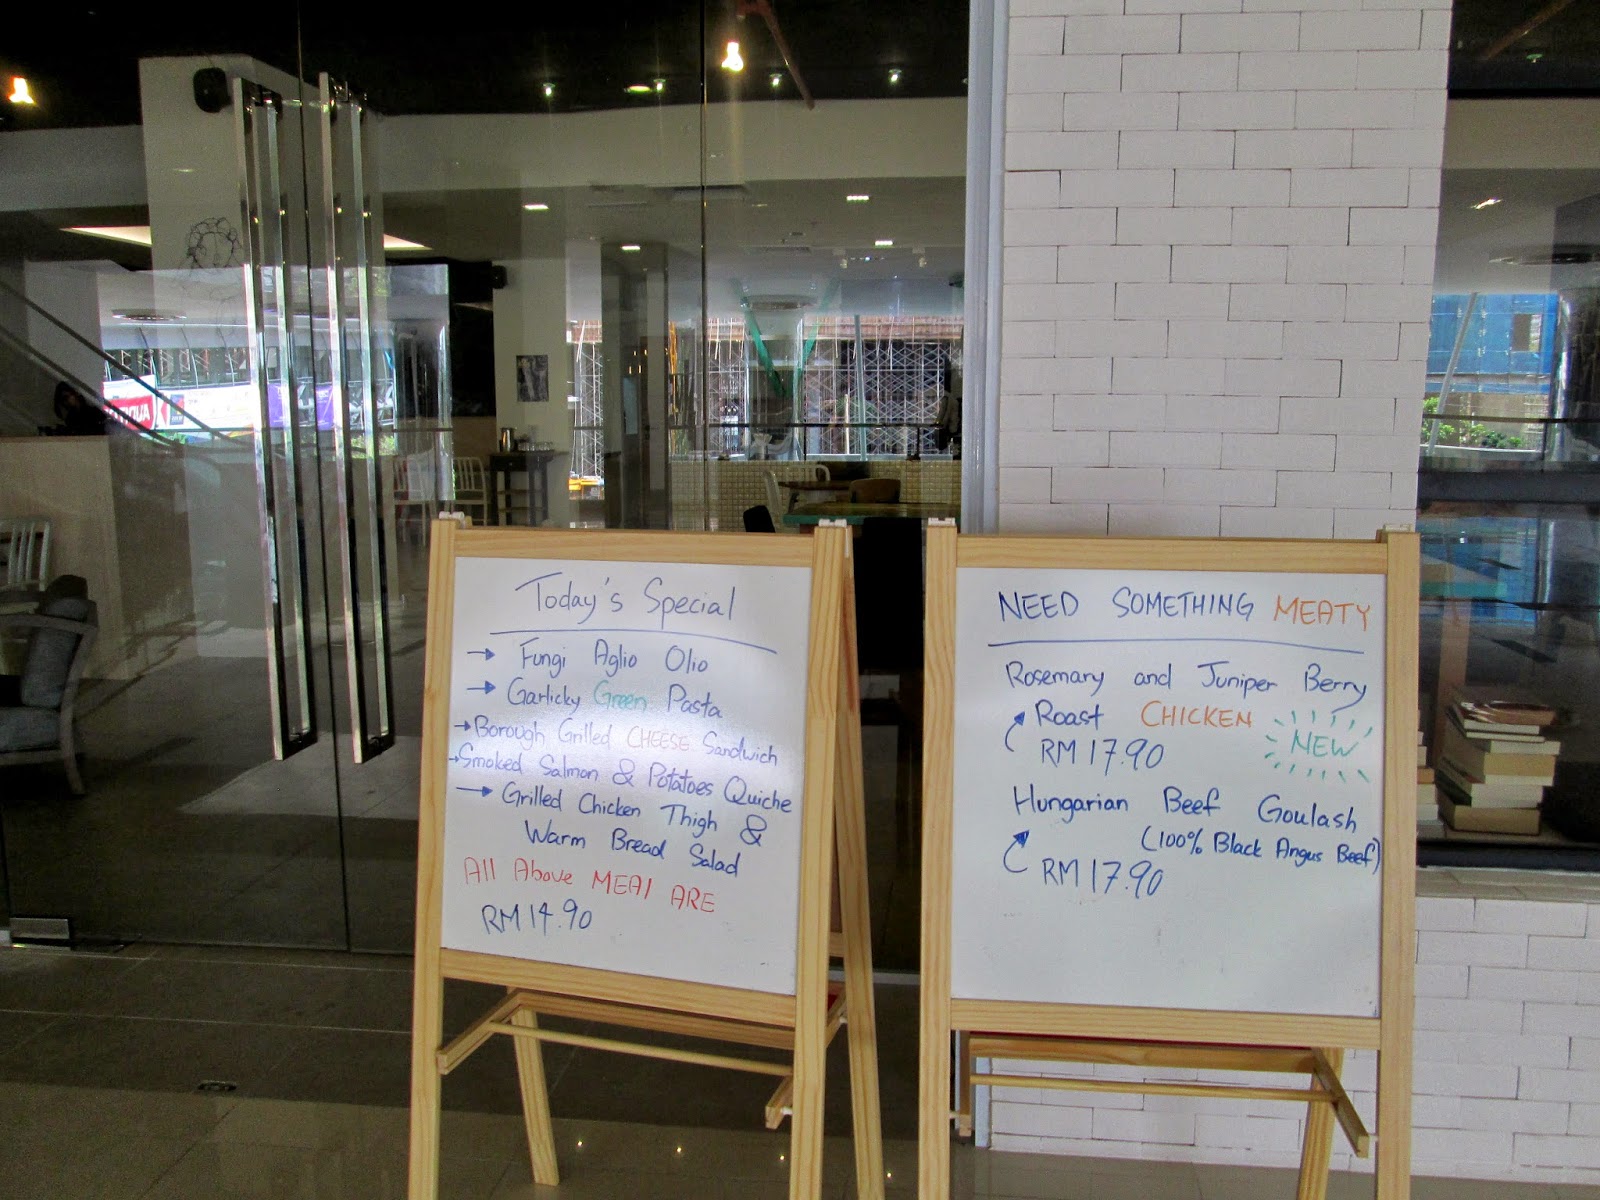 Today's Special
→ Fungi Aglio Olio
→ Garlicky Green Pasta
→ Borough Grilled CHEESE Sandwich
→ Smoked Salmon & Potatoes Quiche
→ Grilled Chicken Thigh &
Warm Bread Salad
All Above MEAl ARE
RM 14.90
NEED SOMETHING MEATY
Rosemary and Juniper Berry
Roast CHICKEN
NEW
RM 17.90
Hungarian Beef Goulash
(100% Black Angus Beef)
RM 17.90